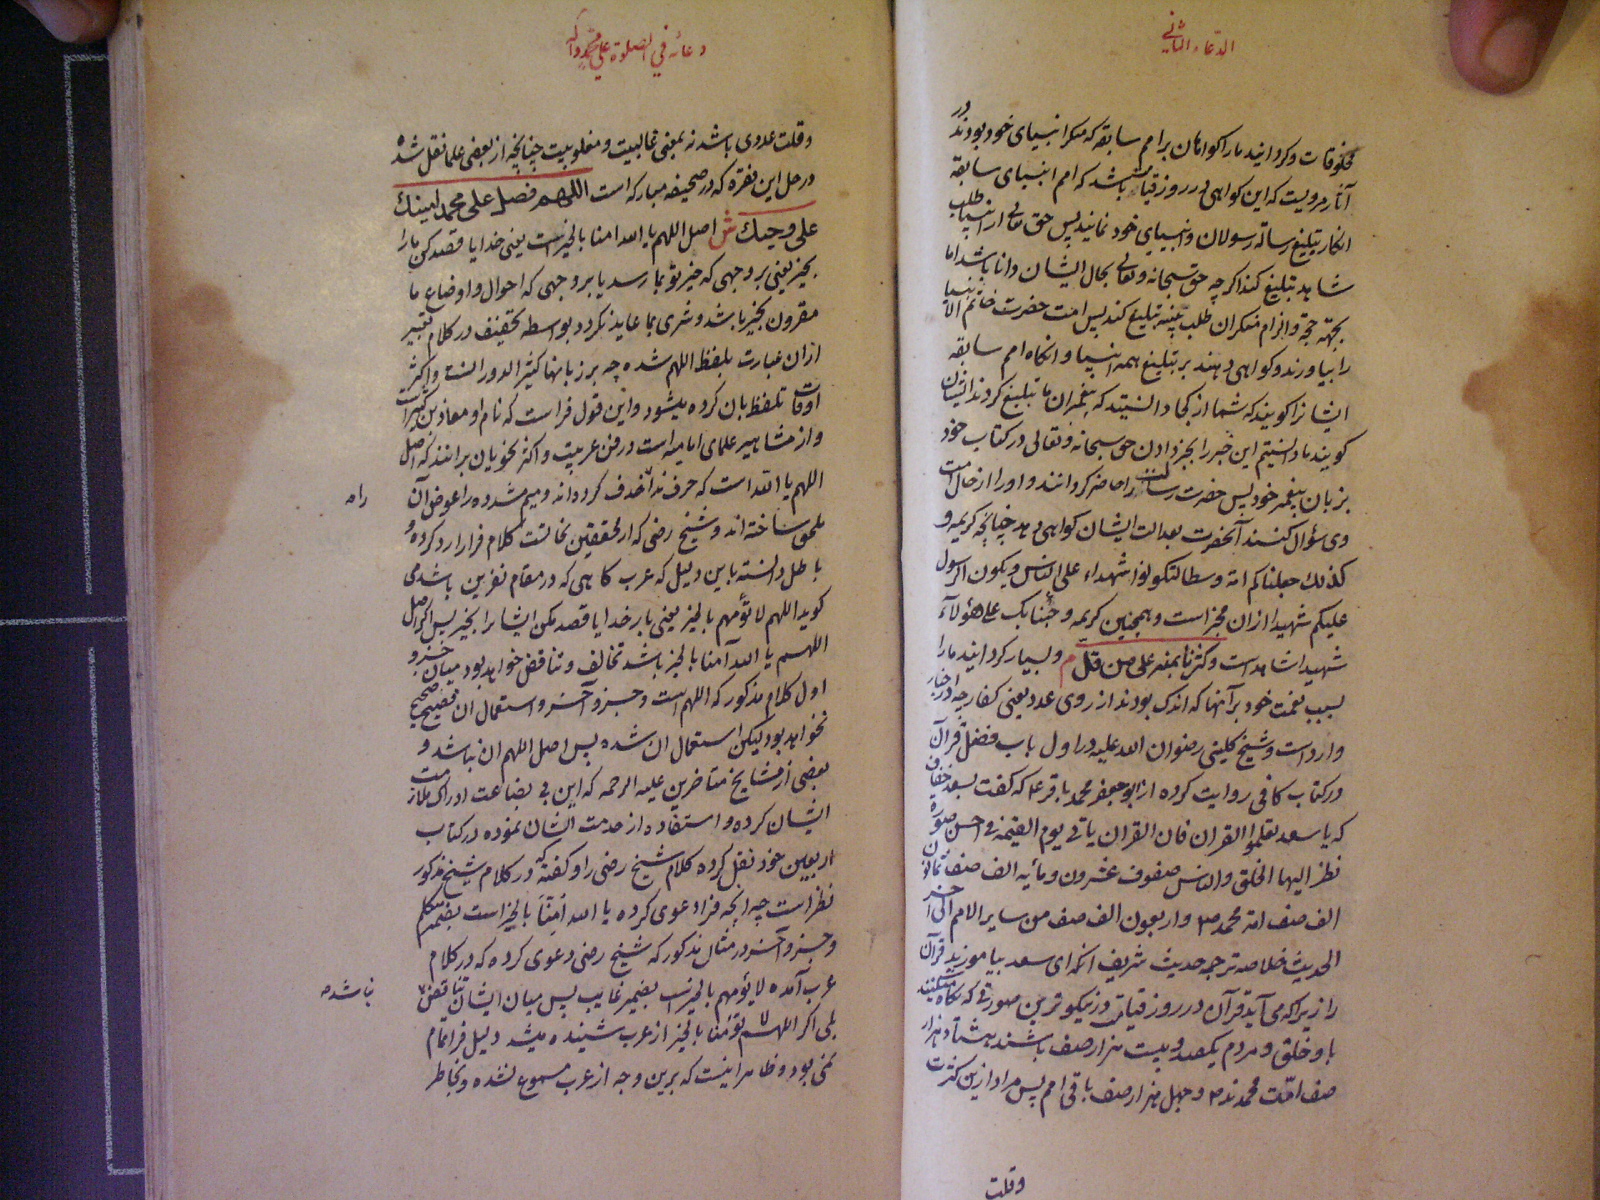 الدعاء الثاني
مخلوقات وکردانید مارا کواهان برامم سابقه که منکر انبیای خود بودند در
آثار مرویست که این کواهی در روز قیامت باشد که امم انبیای سابقه
انکار تبلیغ رسالة رسولان وانبیای خود نمایند پس حق تعالی از انبیا طلب
شاهد تبلیغ کند اکرچه حق سبحانه وتعالی بحال ایشان دانا باشد اما
بجهة حجة والزام منکران طلب بینه تبلیغ کند پس امت حضرت خاتم الانبیا
را بیاورند وکواهی دهند بر تبلیغ همه انبیا وانکاه امم سابقه
ایشانرا کویند که شما از کجا دانستید که پیغمبران ما تبلیغ کردند ایشان
کویند ما دانستیم این خبر را بخبر دادن حق سبحانه وتعالی در کتاب خود
بزبان پیغمبر خود پس حضرت رسالت را حاضر کردانند و او را از حال امت
وی سؤال کنند آنحضرت بعدالت ایشان کواهی دهد چنانچه کریمه و
کذلك جعلناکم امة وسطا لتکونوا شهداء علی الناس ویکون الرسول
علیکم شهیدا ازان مخبر است وهمچنین کریمه وجئنا بك علی هؤلاء
شهیدا شاهد است وکثرنا بمنه علی من قل م وبسیار کردانید مارا
بسبب نعمت خود بر آنها که اندک بودند از روی عدد یعنی کفار چه در اخبار
وارد است وشیخ کلینی رضوان الله علیه در اول باب فضل قرآن
در کتاب کافی روایت کرده از ابو جعفر محمد باقر ع که کفت بسعد خفاف
که یا سعد تعلموا القران فان القران یاتی یوم القیمة فی احسن صورة
نظر الیها الخلق والناس صفوف عشرون ومائة الف صف ثمانون
الف صف امة محمد ص واربعون الف صف من سایر الامم الی آخر
الحدیث خلاصه ترجمه حدیث شریف انکه ای سعد بیاموزید قرآن
را زیرا که می آید قرآن در روز قیامت در نیکوترین صورتی که نکاه میکنند
باو خلق ومردم یکصد وبیست هزار صف باشند هشتاد هزار
صف امت محمدند ص وچهل هزار صف باقی امم پس مراد ازین کثرت
وقلت
دعائه في الصلوة علی محمد وآله
وقلت عددی باشد نه بمعنی غالبیت ومغلوبیت چنانچه از بعضی علما نقل شده
در حل این فقره که در صحیفه مبارکه است اللهم فصل علی محمد امینك
علی وحیك ش اصل اللهم یا الله امنا بالخیر است یعنی خدایا قصد کن مارا
بخیر یعنی بر وجهی که خیر تو بما رسد یا بر وجهی که احوال واوضاع ما
مقرون بخیر باشد وشری بما عاید نکردد بواسطه تخفیف در کلام تعبیر
ازان عبارت بلفظ اللهم شده چه بر زبانها کثیر الدوران است واکثر
اوقات تلفظ بان کرده میشود واین قول فرا است که نام او معاذ بن کثیر است
واز مشاهیر علمای امامیه است در فن عربیت واکثر نحویان برانند که اصل
اللهم یا الله است که حرف ندا حذف کرده‌اند ومیم مشدده را عوض آن
راه
ملحق ساخته اند وشیخ رضی که از محققین نحات است کلام فرا را رد کرده و
باطل دانسته باین دلیل که عرب کاهی که در مقام نفرین باشد می
کوید اللهم لا تؤمهم بالخیر یعنی بار خدایا قصد مکن ایشانرا بخیر پس اکر اصل
اللهم یا الله آمنا بالخیر باشد تخالف وتناقض خواهد بود میان جزو
اول کلام مذکور که اللهم است وجزو آخر واستعمال ان فصیح صحیح
نخواهد بود لیکن استعمال ان شده پس اصل اللهم ان نباشد و
بعضی از مشایخ متاخرین علیه الرحمه که این بی بضاعت ادراک ملازمت
ایشان کرده و استفاده از خدمت ایشان نموده در کتاب
اربعین خود نقل کرده کلام شیخ رضی را وکفته که در کلام شیخ مذکور
نظر است چه انچه فرا دعوی کرده یا الله امنا بالخیر است بضمیر متکلم
وجزو آخر در مثال مذکور که شیخ رضی دعوی کرده که در کلام
عرب آمده لا یؤمهم بالخیر است بضمیر غایب پس میان ایشان تناقض
نباشد
بلی اکر اللهم لا تؤمنا بالخیر از عرب شنیده میشد دلیل فرا تمام
نمی بود وظاهرا نیست که برین وجه از عرب مسموع نشده وبخاطر